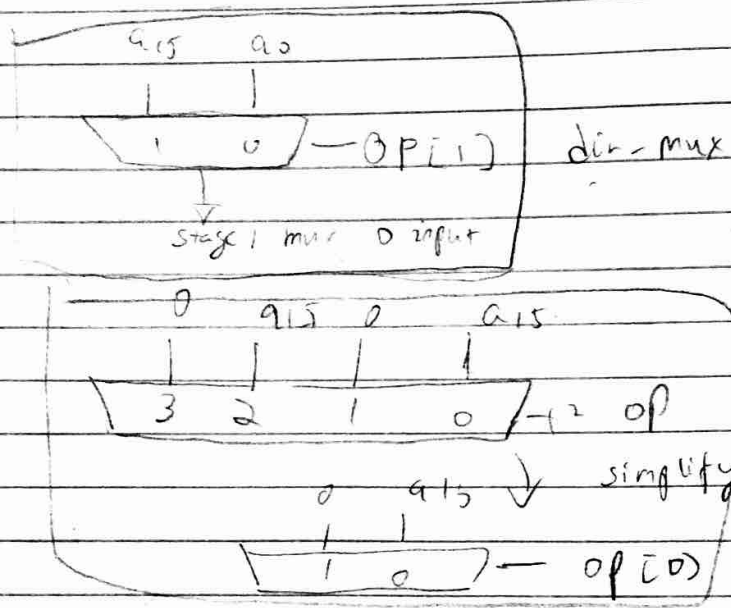 a15 a0
1 0 OP[1] dir-mux
stage 1 mux 0 input
0 a15 0 a15
3 2 1 0 2 OP
simplify
0 a15
1 0 OP[0]